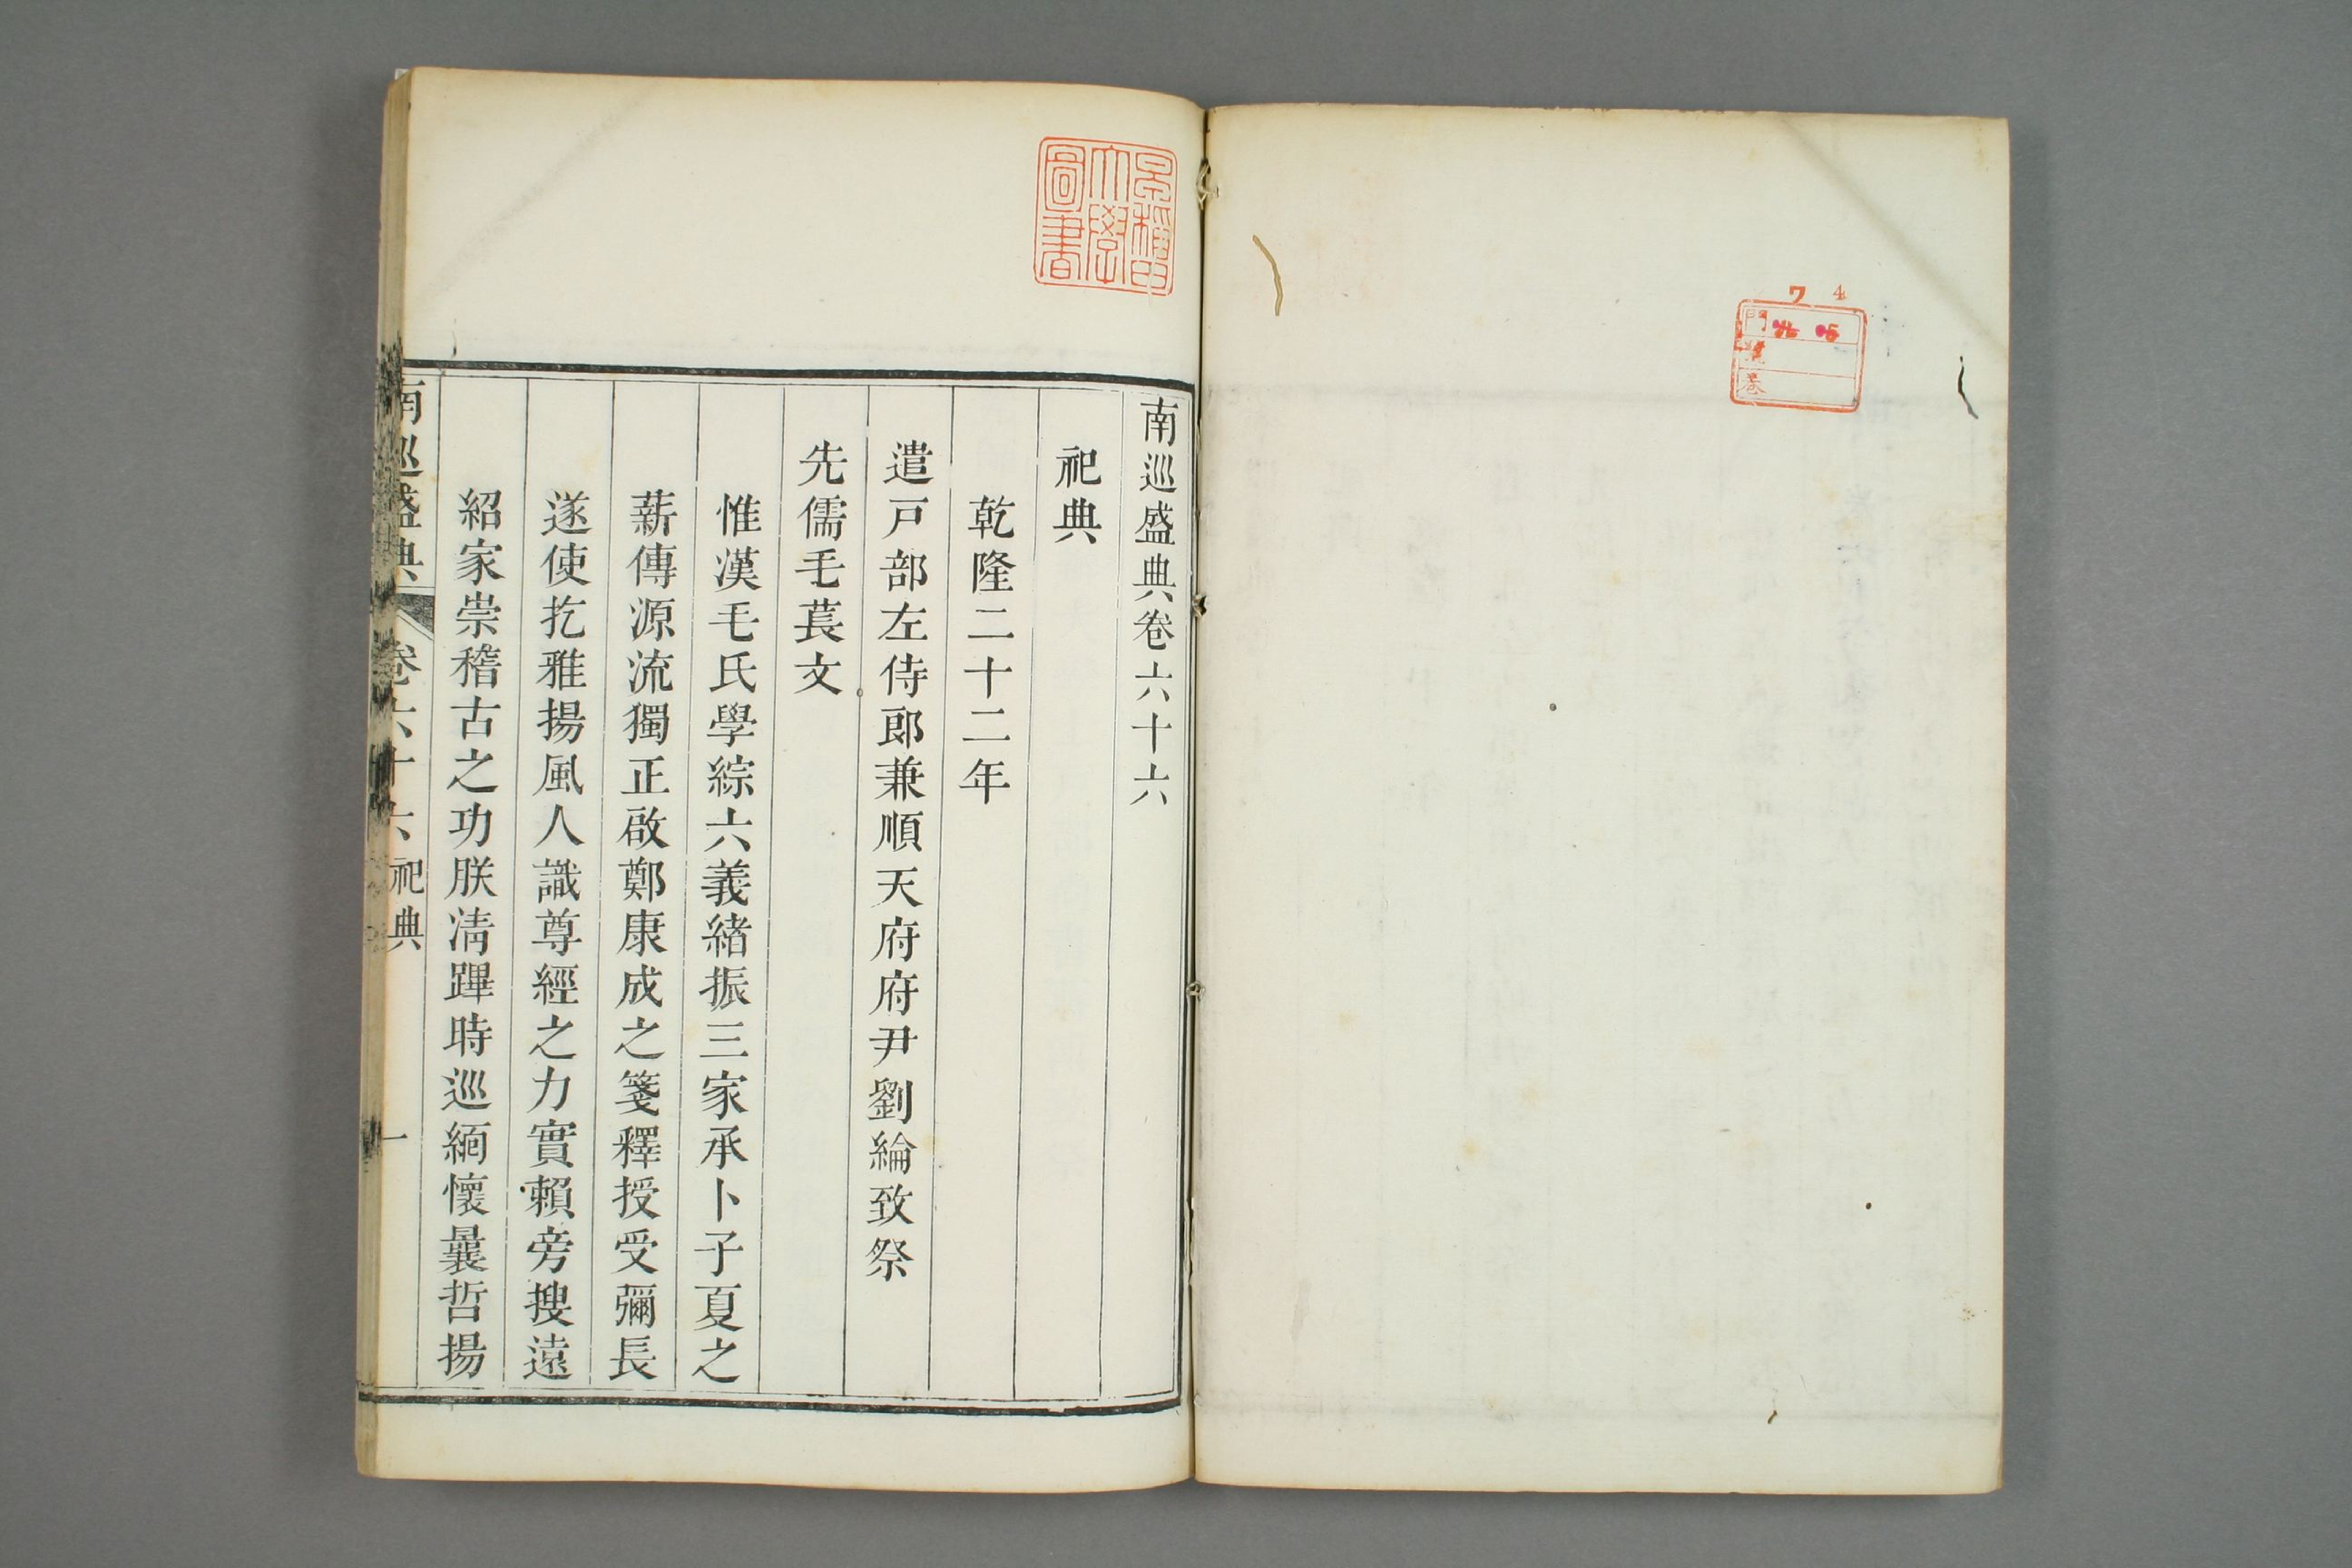 南巡盛典卷六十六
祀典
乾隆二十二年
遣戸部左侍郎兼順天府府尹劉綸致祭
先儒毛萇文
惟漢毛氏學綜六義緒振三家承卜子夏之
薪傳源流獨正啟鄭康成之箋釋授受彌長
遂使扢雅揚風人識尊經之力實賴旁搜遠
紹家崇稽古之功朕清蹕時巡緬懷曩哲揚
南巡盛典 卷六十六 祀典 一
早稲田大學圖書
7 4
門
號
卷